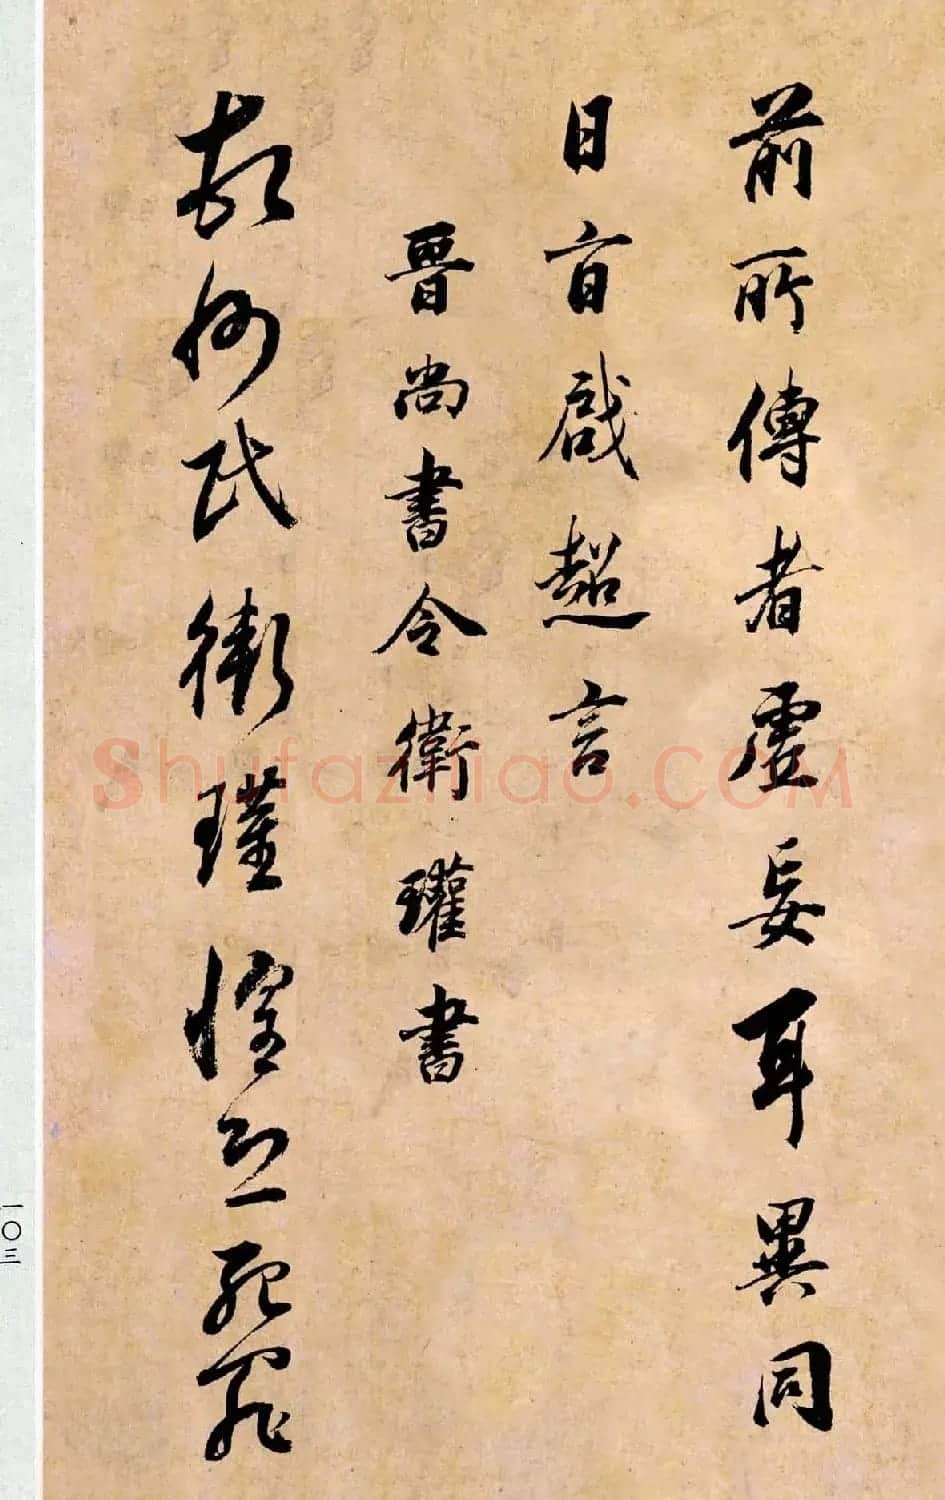 前所傳者虛妄耳異同
日盲戲超言
晉尚書令衛瓘書
頓州民衛瓘惶恐死罪
一〇三
Shufaziliao.COM